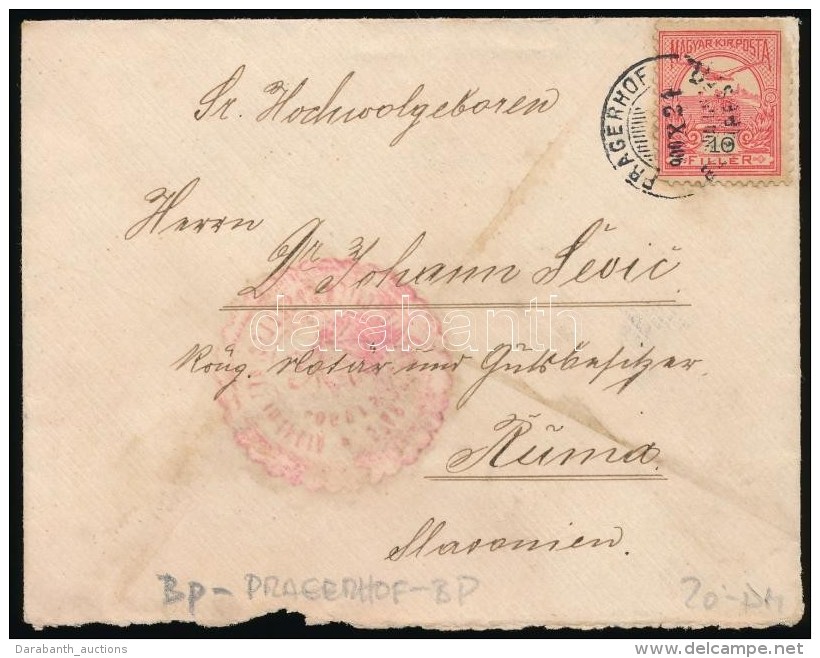 MAGYAR KIR. POSTA
10
FILLÉR
PRAGERHOF
900 X 21
Sr. Hochwolgeboren
Herrn
Dr. Johann Šević
darabanth
köng. Notar und Gutsbesitzer
Ruma.
Slavonien.
Bp - PRAGERHOF - BP
20 - DM
Darabanth_auctions
delcampe.net